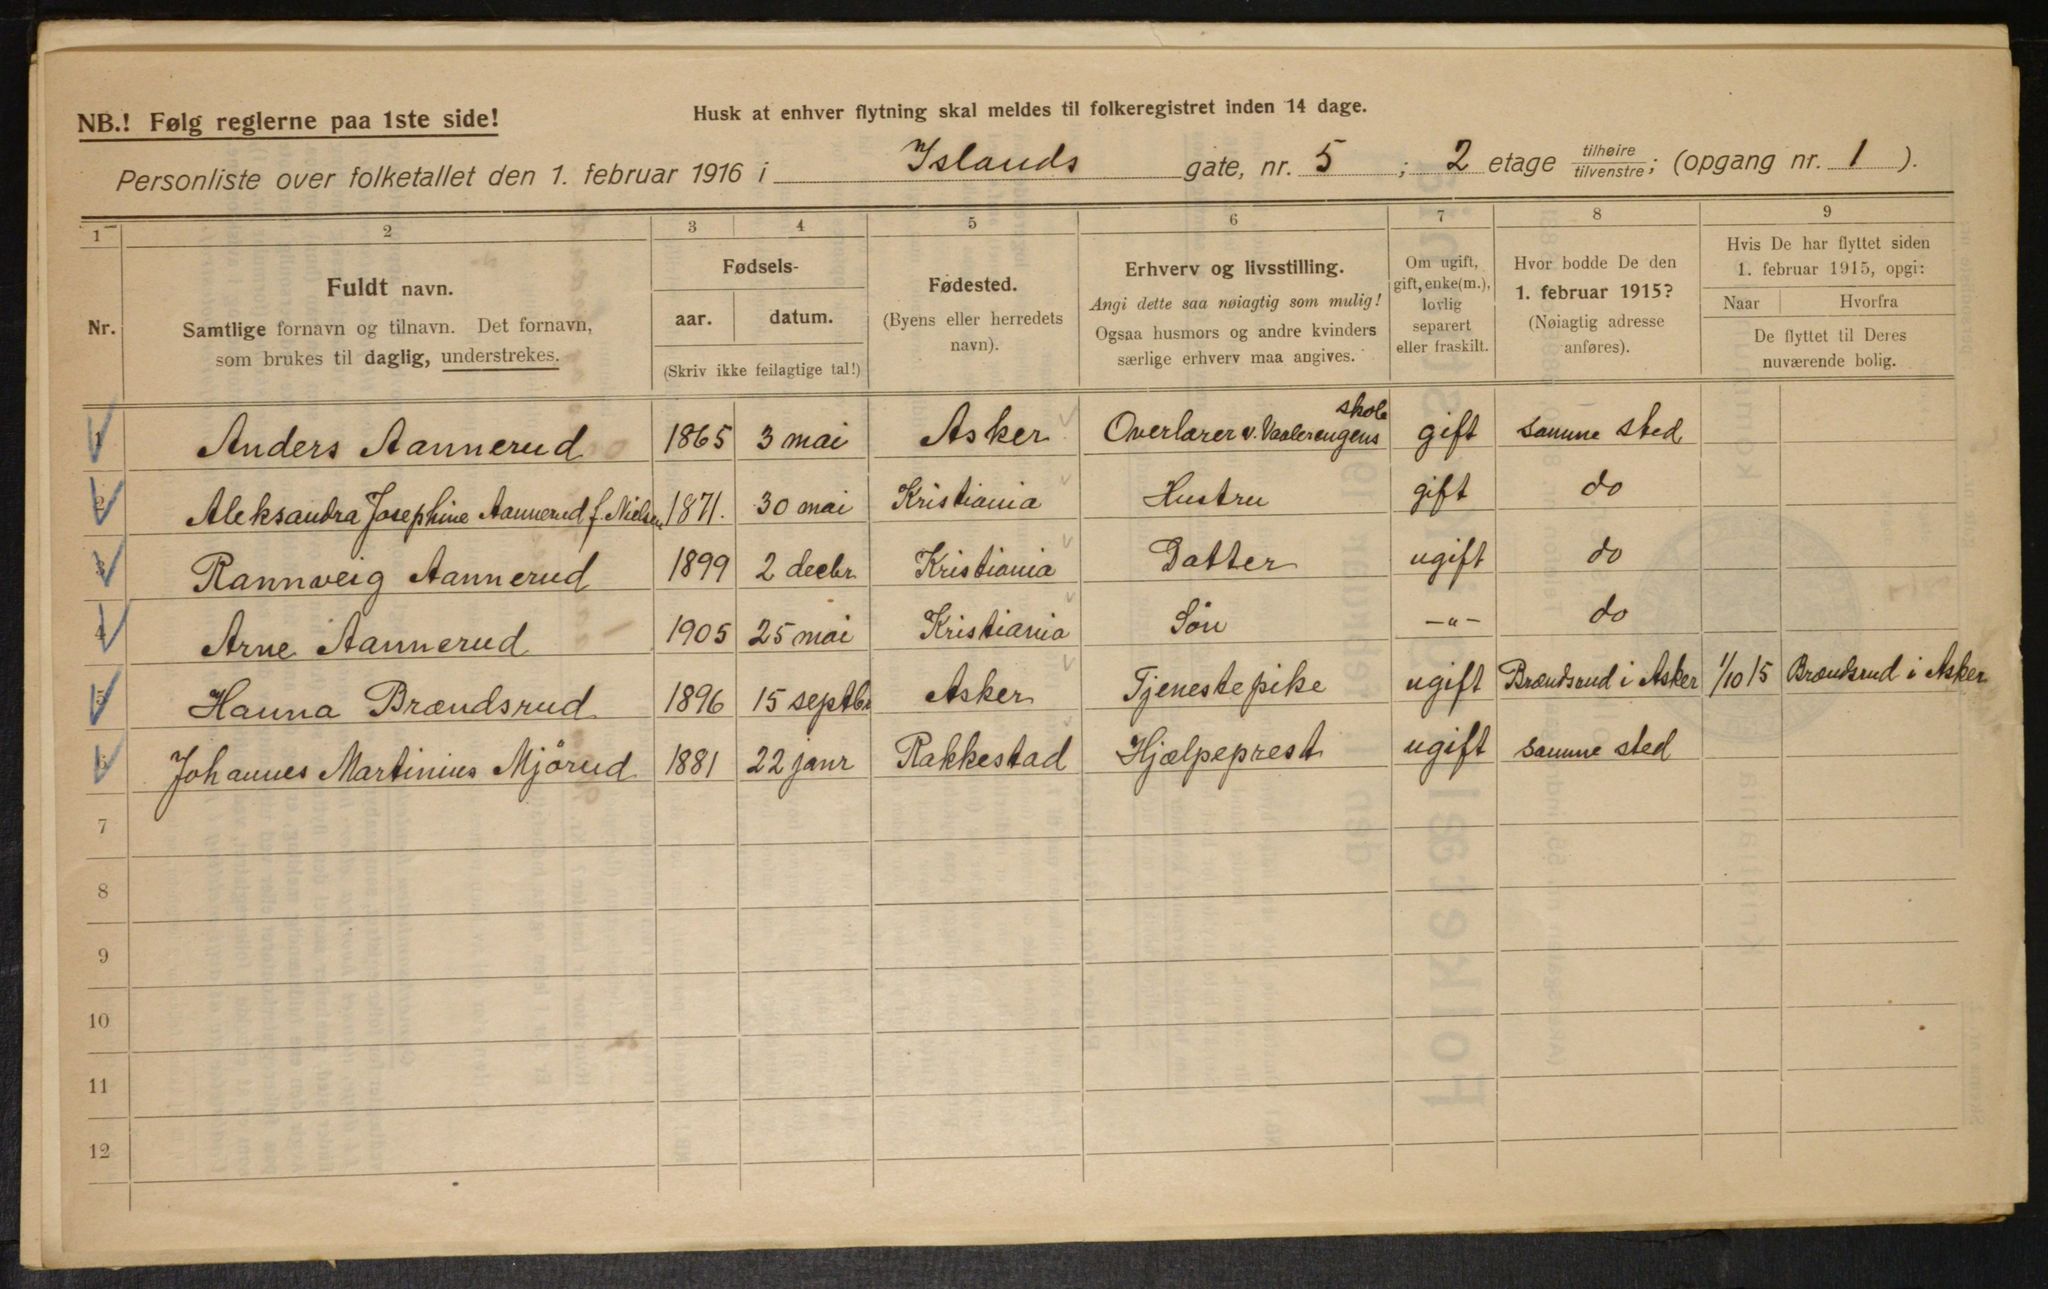 NB.! Følg reglerne paa 1ste side!
Husk at enhver flytning skal meldes til folkeregistret inden 14 dage.
Personliste over folketallet den 1. februar 1916 i Islands gate, nr. 5 ; 2 etage tilhøire/tilvenstre; (opgang nr. 1 ).
1 2 3 4 5 6 7 8 9
Nr.
Fuldt navn.
Samtlige fornavn og tilnavn. Det fornavn,
som brukes til daglig, understrekes.
Fødsels-
aar. datum.
(Skriv ikke feilagtige tal!)
Fødested.
(Byens eller herredets
navn).
Erhverv og livsstilling.
Angi dette saa nøiagtig som mulig!
Ogsaa husmors og andre kvinders
særlige erhverv maa angives.
Om ugift,
gift, enke(m.),
lovlig
separert
eller fraskilt.
Hvor bodde De den
1. februar 1915?
(Nøiagtig adresse
anføres).
Hvis De har flyttet siden
1. februar 1915, opgi:
Naar Hvorfra
De flyttet til Deres
nuværende bolig.
1 Anders Aannerud 1865 3 mai Asker Overlærer v. Vaalerengens skole gift samme sted
2 Aleksandra Josephine Aannerud f. Nielsen 1871. 30 mai Kristiania Hustru gift do
3 Rannveig Aannerud 1899 2 decbr Kristiania Datter ugift do
4 Arne Aannerud 1905 25 mai Kristiania Søn -"- do
5 Hanna Brændsrud 1896 15 septbr Asker Tjenestepike ugift Brændsrud i Asker 1/10 15 Brændsrud i Asker
6 Johannes Martinius Mjörud 1881 22 janr Rakkestad Hjælpeprest ugift samme sted
7
8
9
10
11
12